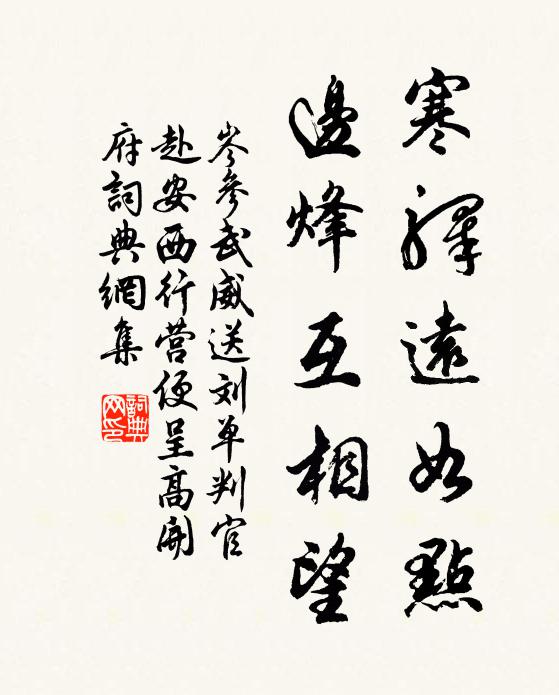 寒驛遠如點
邊烽互相望
岑參武威送刘单判官
赴安西行营便呈高開
府詞典網集
詞典网印